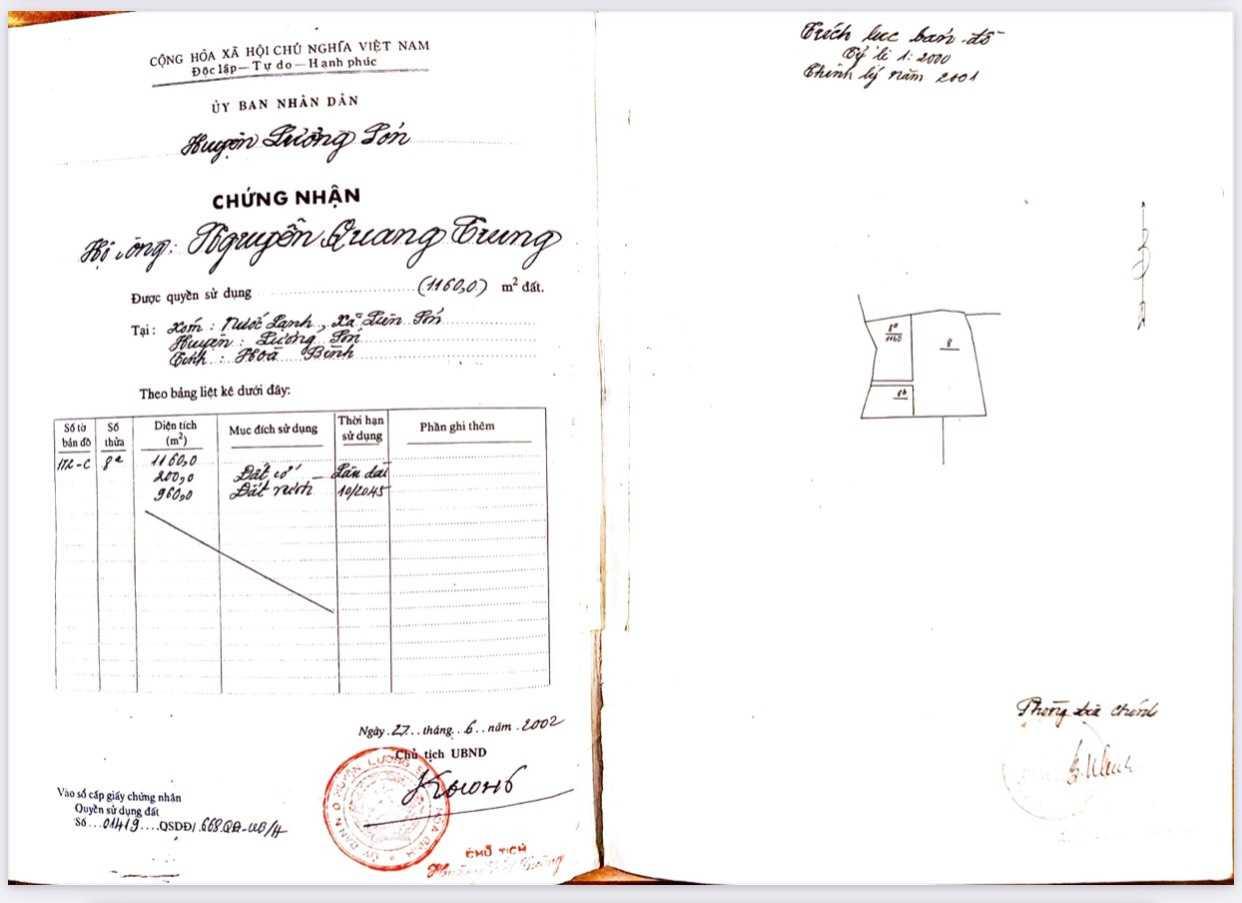 CỘNG HÒA XÃ HỘI CHỦ NGHĨA VIỆT NAM
Độc lập — Tự do — Hạnh phúc
ỦY BAN NHÂN DÂN
Huyện Lương Sơn
CHỨNG NHẬN
Hộ ông: Nguyễn Quang Trung
Được quyền sử dụng (1160,0) m² đất.
Tại: Xóm: Nước Lạnh, Xã Liên Sơn
Huyện: Lương Sơn
Tỉnh: Hoà Bình
Theo bảng liệt kê dưới đây:
Số tờ bản đồ Số thửa Diện tích (m²) Mục đích sử dụng Thời hạn sử dụng Phần ghi thêm
172-C 8a 1160,0
200,0 Đất ở Lâu dài
960,0 Đất vườn 10/2045
Ngày 27 tháng 6 năm 2002
Chủ tịch UBND
Vào sổ cấp giấy chứng nhận
Quyền sử dụng đất
Số 01419 QSDĐ/ 668 QĐ-UB/H
CHỦ TỊCH
Trích lục bản đồ
Tỷ lệ 1:2000
Chỉnh lý năm 2001
8a
1160
8
8b
Phòng địa chính